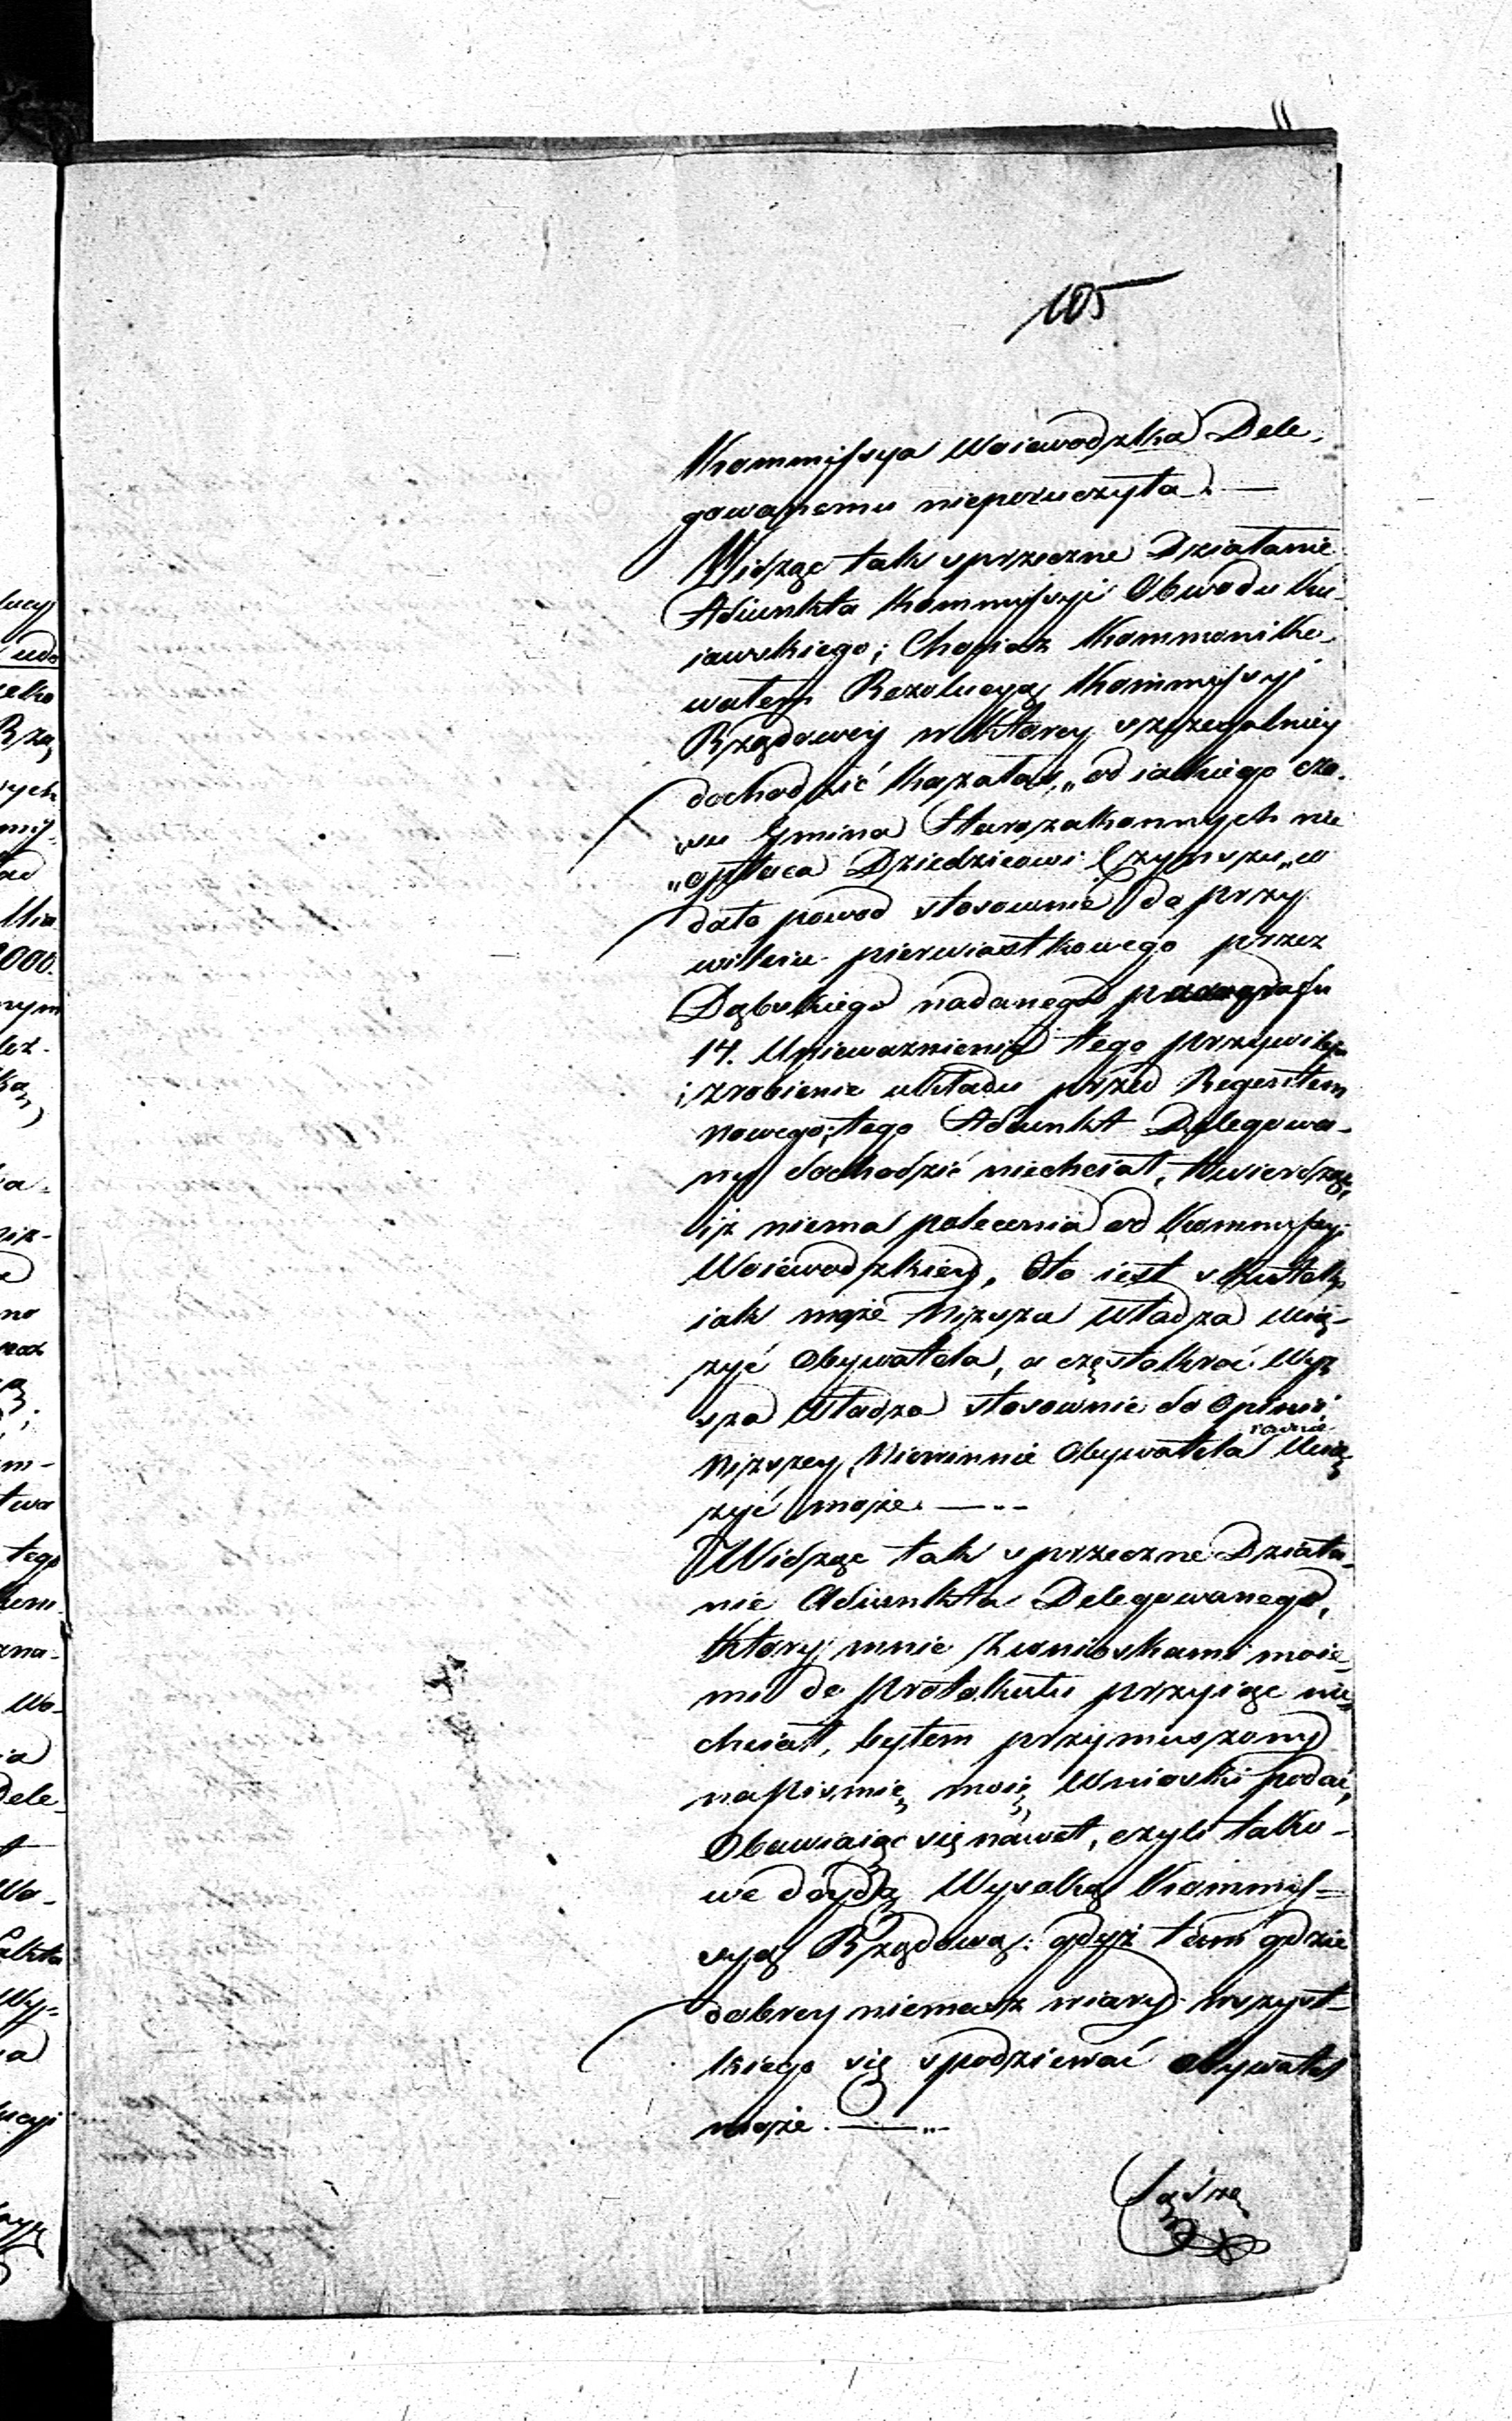 105
Kommissya Woiewodzka Dele,
gowanemu nieporuczyła. —
Widząc tak sprzeczne Działanie
Adiunkta Kommissyi Obwodu Ku-
iawskiego; Chociaż Kommoniko-
wałem Rezolucyą Kommissyi
Rządowey w ktorey szczegulniey
dochodzić kazała, „od iakiego cza-
„su Gmina Starozakonnych nie
„opłaca Dziedzicowi Czynszu„ co
dało powod stosownie do przy
wileiu pierwiastkowego przez
Dąbskiego nadanego paragrafu
14. Unieważnienia tego przywileiu
i zrobienie układu przed Regentem
nowego; tego Adiunkt Delegowa-
ny dochodzić niechciał, twierdząc,
iż niema polecenia od Kommissyi
Woiewodzkiey, Oto iest skutek
iak może Niższa Władza Ucią-
żyć Obywatela, a częstokroć Wyż
sza Władza stosownie do Opinii
rownie
Niższey, Niewinnie Obywatela Ucią
żyć może. — --
Widząc tak sprzeczne Działa-
nie Adiunkta Delegowanego,
Ktory mnie z wnioskami moie-
mi do Protokułu przyiąć nie-
chciał, byłem przymuszony
na Pismie moie Wnioski podać,
Obawiaiąc się nawet, czyli tako-
we doydą Wysoką Kommis=
syą Rządową: gdyż tam gdzie
dobrey niemasz wiary wszyst-
kiego się spodziewać obywatel
może. — ...
Sądzę
lucyi
udo
Rzą
Mia
000.
nym
tego
Wo-
Dele-
Wy=